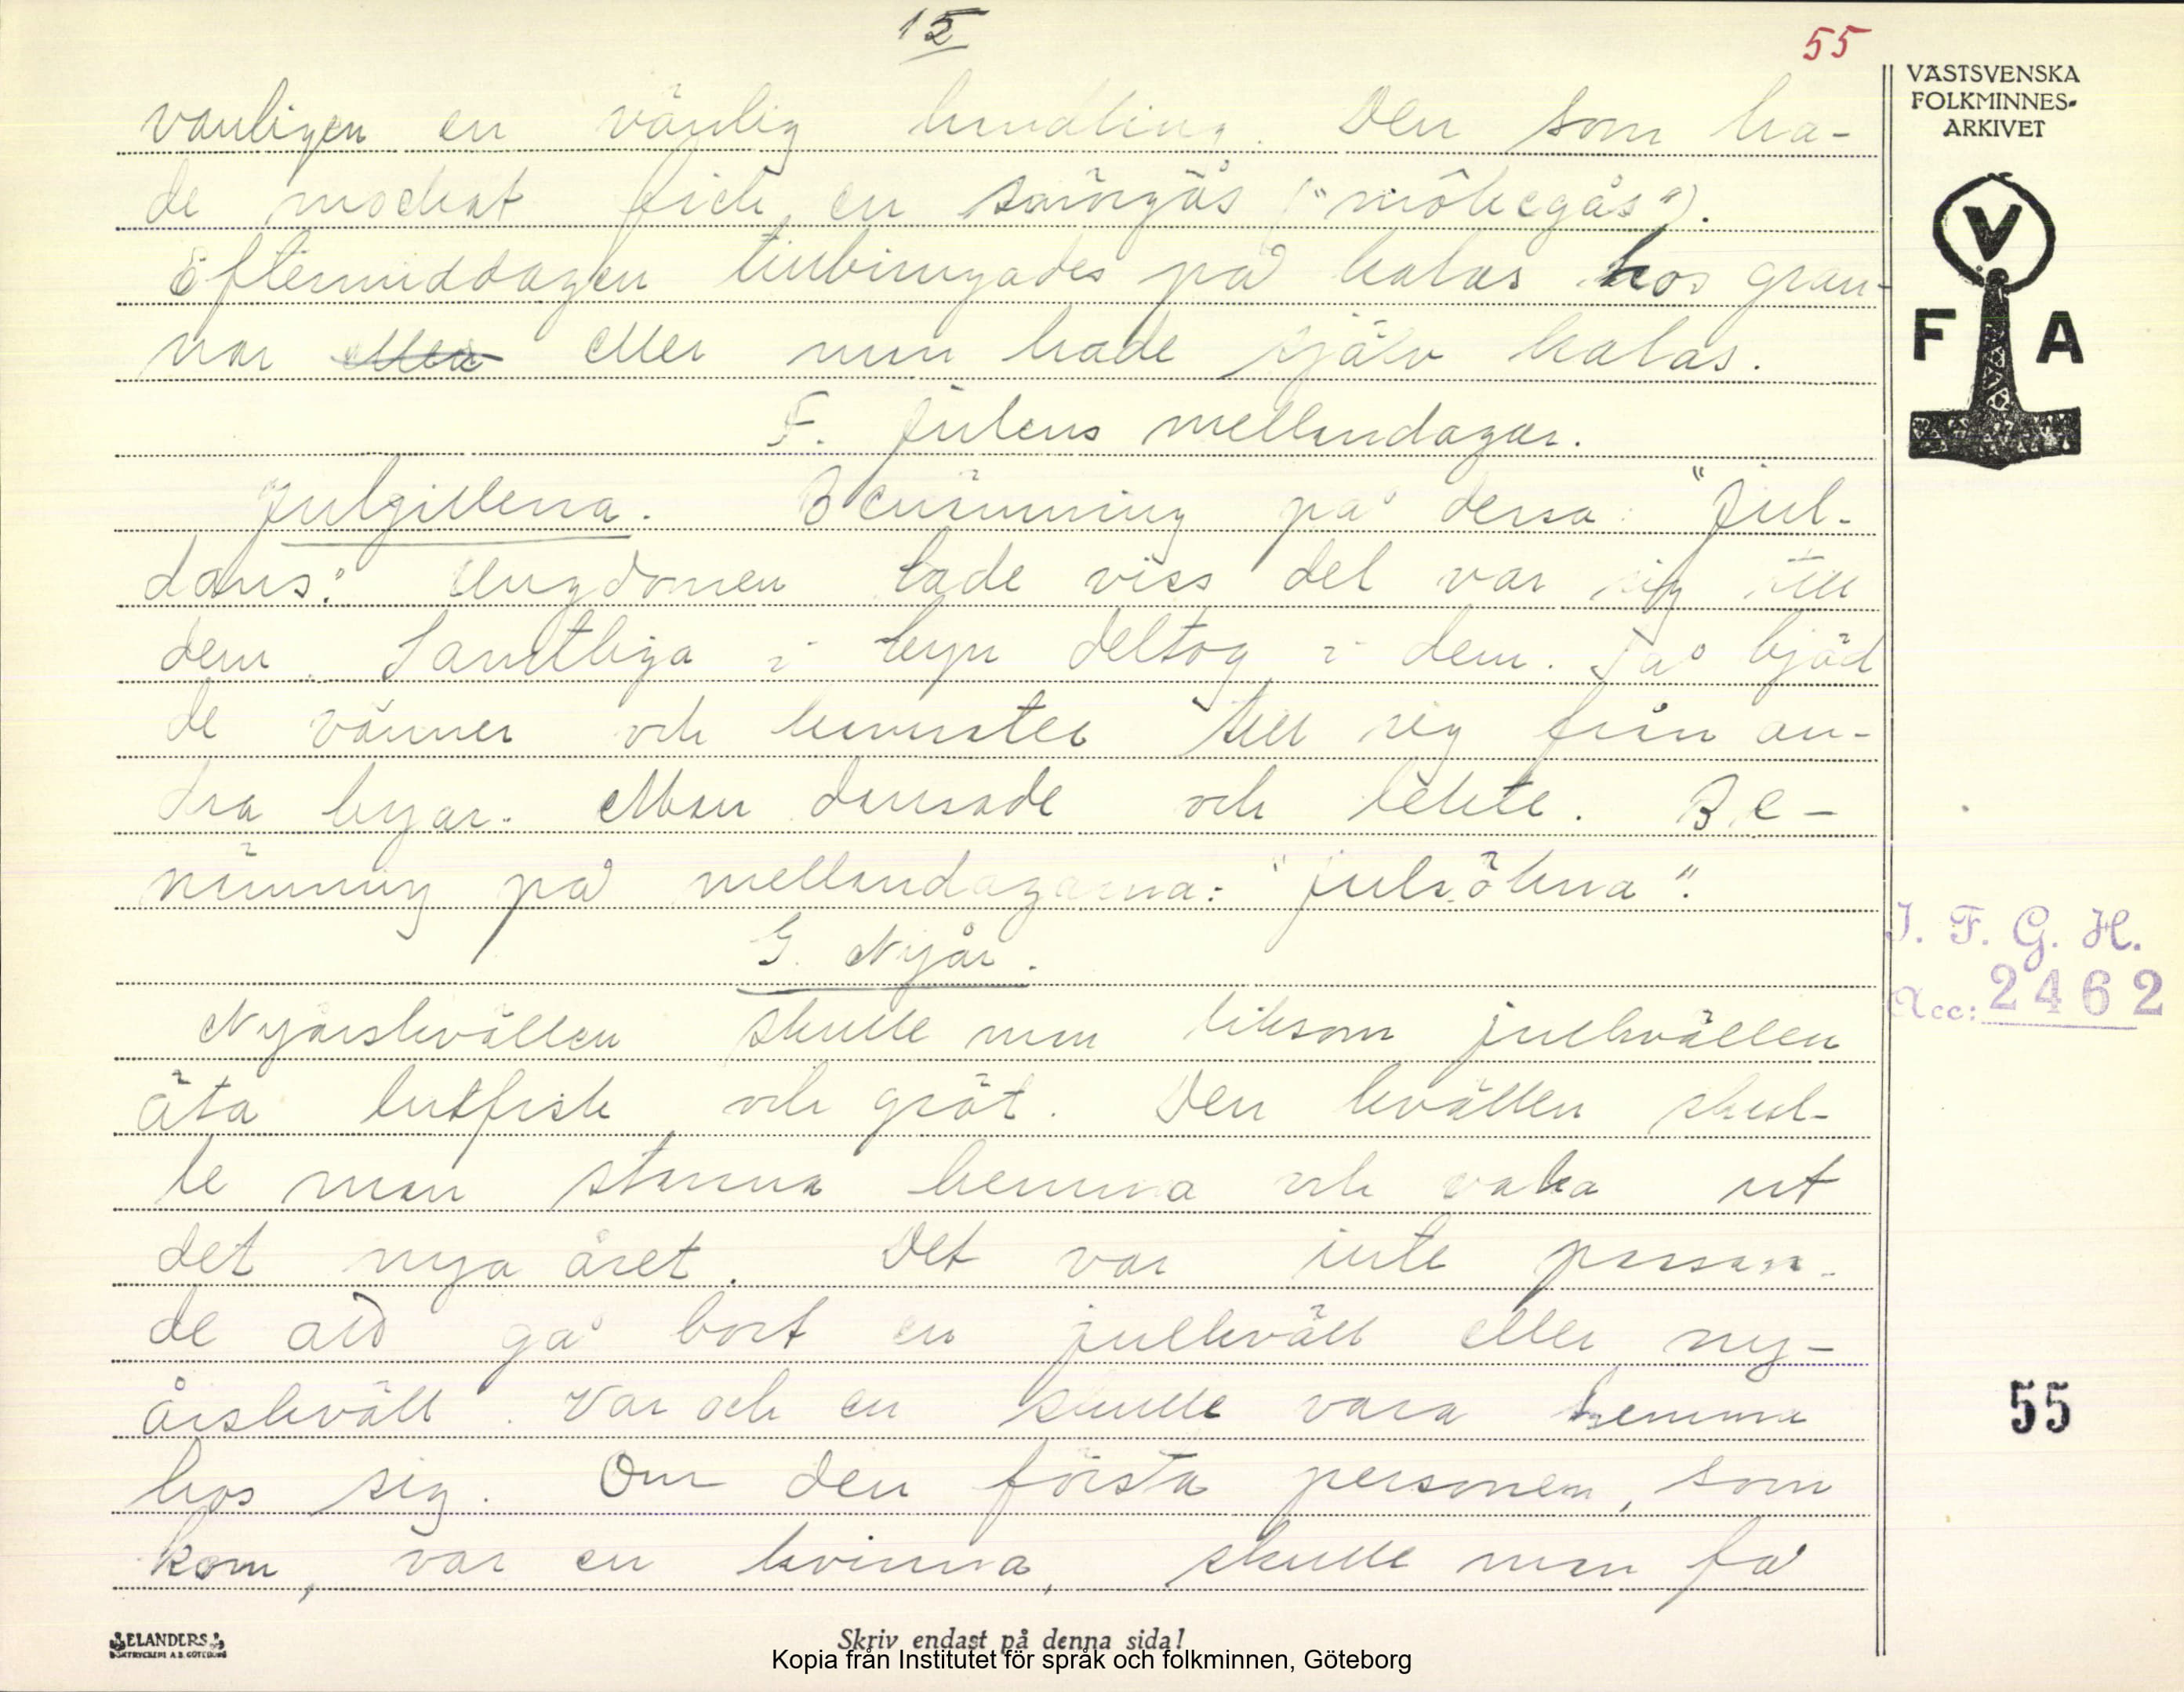 15
55
VÄSTSVENSKA
FOLKMINNES-
ARKIVET
V
F A
vanligen en vänlig handling. Den som ha-
de mockat fick en smörgås ("môkegås").
Eftermiddagen tillbringades på kalas hos gran-
nar eller eller man hade själv kalas.
F. Julens mellandagar.
Julgillena. Benämning på dessa: "Jul-
dans". Ungdomen lade viss del var sig till
dem. Samtliga i byn deltog i dem. Så bjöd
de vänner och bekanta till sig från an-
dra byar. Man dansade och lekte. Be-
nämning på mellandagarna: "julsökna".
G. Nyår.
Nyårskvällen skulle man liksom julkvällen
äta lutfisk och gröt. Den kvällen skul-
le man stanna hemma och vaka ut
det nya året. Det var inte passan-
de att gå bort en julkväll eller ny-
årskväll. Var och en skulle vara hemma
hos sig. Om den första personen, som
kom, var en kvinna, skulle man få
I. F. G. H.
Acc: 2462
55
ELANDERS
BOKTRYCKERI A.B. GÖTEBORG
Skriv endast på denna sida!
Kopia från Institutet för språk och folkminnen, Göteborg